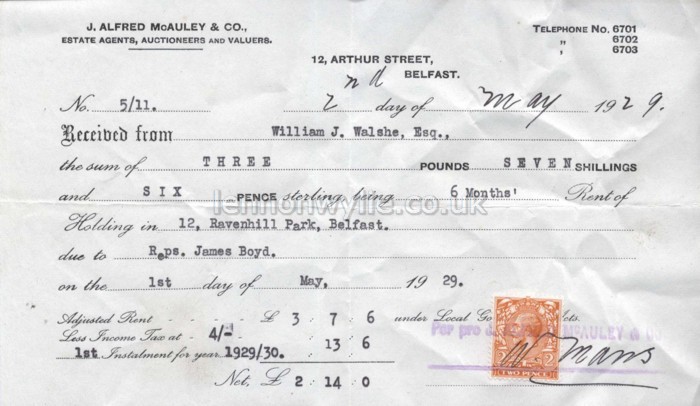 J. ALFRED McAULEY & CO.,
ESTATE AGENTS, AUCTIONEERS AND VALUERS.
TELEPHONE No. 6701
„ 6702
„ 6703
12, ARTHUR STREET,
BELFAST.
No. 5/11. 2nd day of May 1929.
Received from William J. Walshe, Esq.,
the sum of THREE POUNDS SEVEN SHILLINGS
and SIX PENCE sterling being 6 Months' Rent of
lennonwylie.co.uk
Holding in 12, Ravenhill Park, Belfast.
due to Reps. James Boyd.
on the 1st day of May, 1929.
Adjusted Rent - - - £ 3 : 7 : 6 under Local Acts.
Less Income Tax at - 4/- 13 : 6
1st Instalment for year 1929/30.
Net, £ 2 : 14 : 0
Per pro J. McAULEY & CO
TWO PENCE